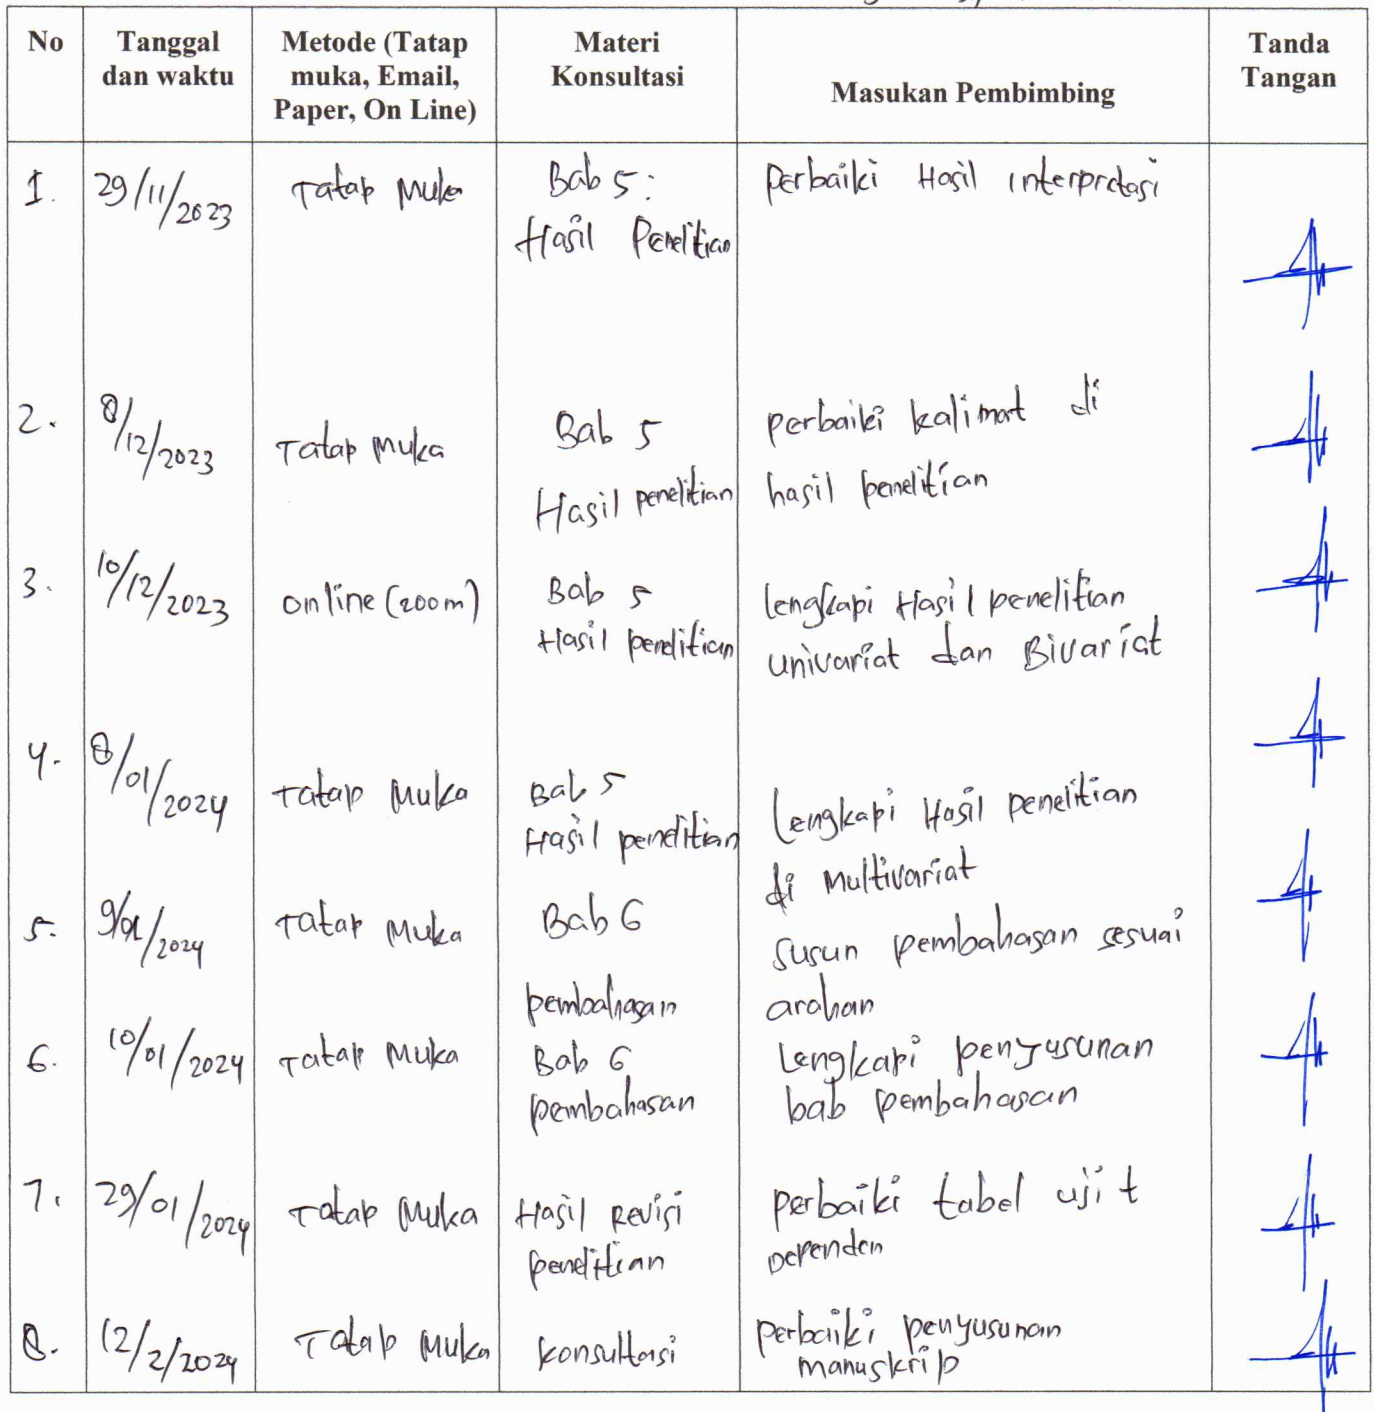 No
Tanggal
dan waktu
Metode (Tatap
muka, Email,
Paper, On Line)
Materi
Konsultasi
Masukan Pembimbing
Tanda
Tangan
1.
29/11/2023
Tatap Muka
Bab 5:
Hasil Penelitian
Perbaiki Hasil interpretasi
2.
8/12/2023
Tatap Muka
Bab 5
Hasil penelitian
perbaiki kalimat di
hasil penelitian
3.
10/12/2023
online (zoom)
Bab 5
Hasil penelitian
lengkapi Hasil penelitian
univariat dan Bivariat
4.
8/01/2024
Tatap Muka
Bab 5
Hasil penelitian
Lengkapi Hasil penelitian
di Multivariat
5.
9/01/2024
Tatap Muka
Bab 6
pembahasan
Susun pembahasan sesuai
arahan
6.
10/01/2024
Tatap Muka
Bab 6
pembahasan
Lengkapi penyusunan
bab pembahasan
7.
29/01/2024
Tatap Muka
Hasil Revisi
penelitian
perbaiki tabel uji t
Dependen
8.
12/2/2024
Tatap Muka
konsultasi
perbaiki penyusunan
manuskrip